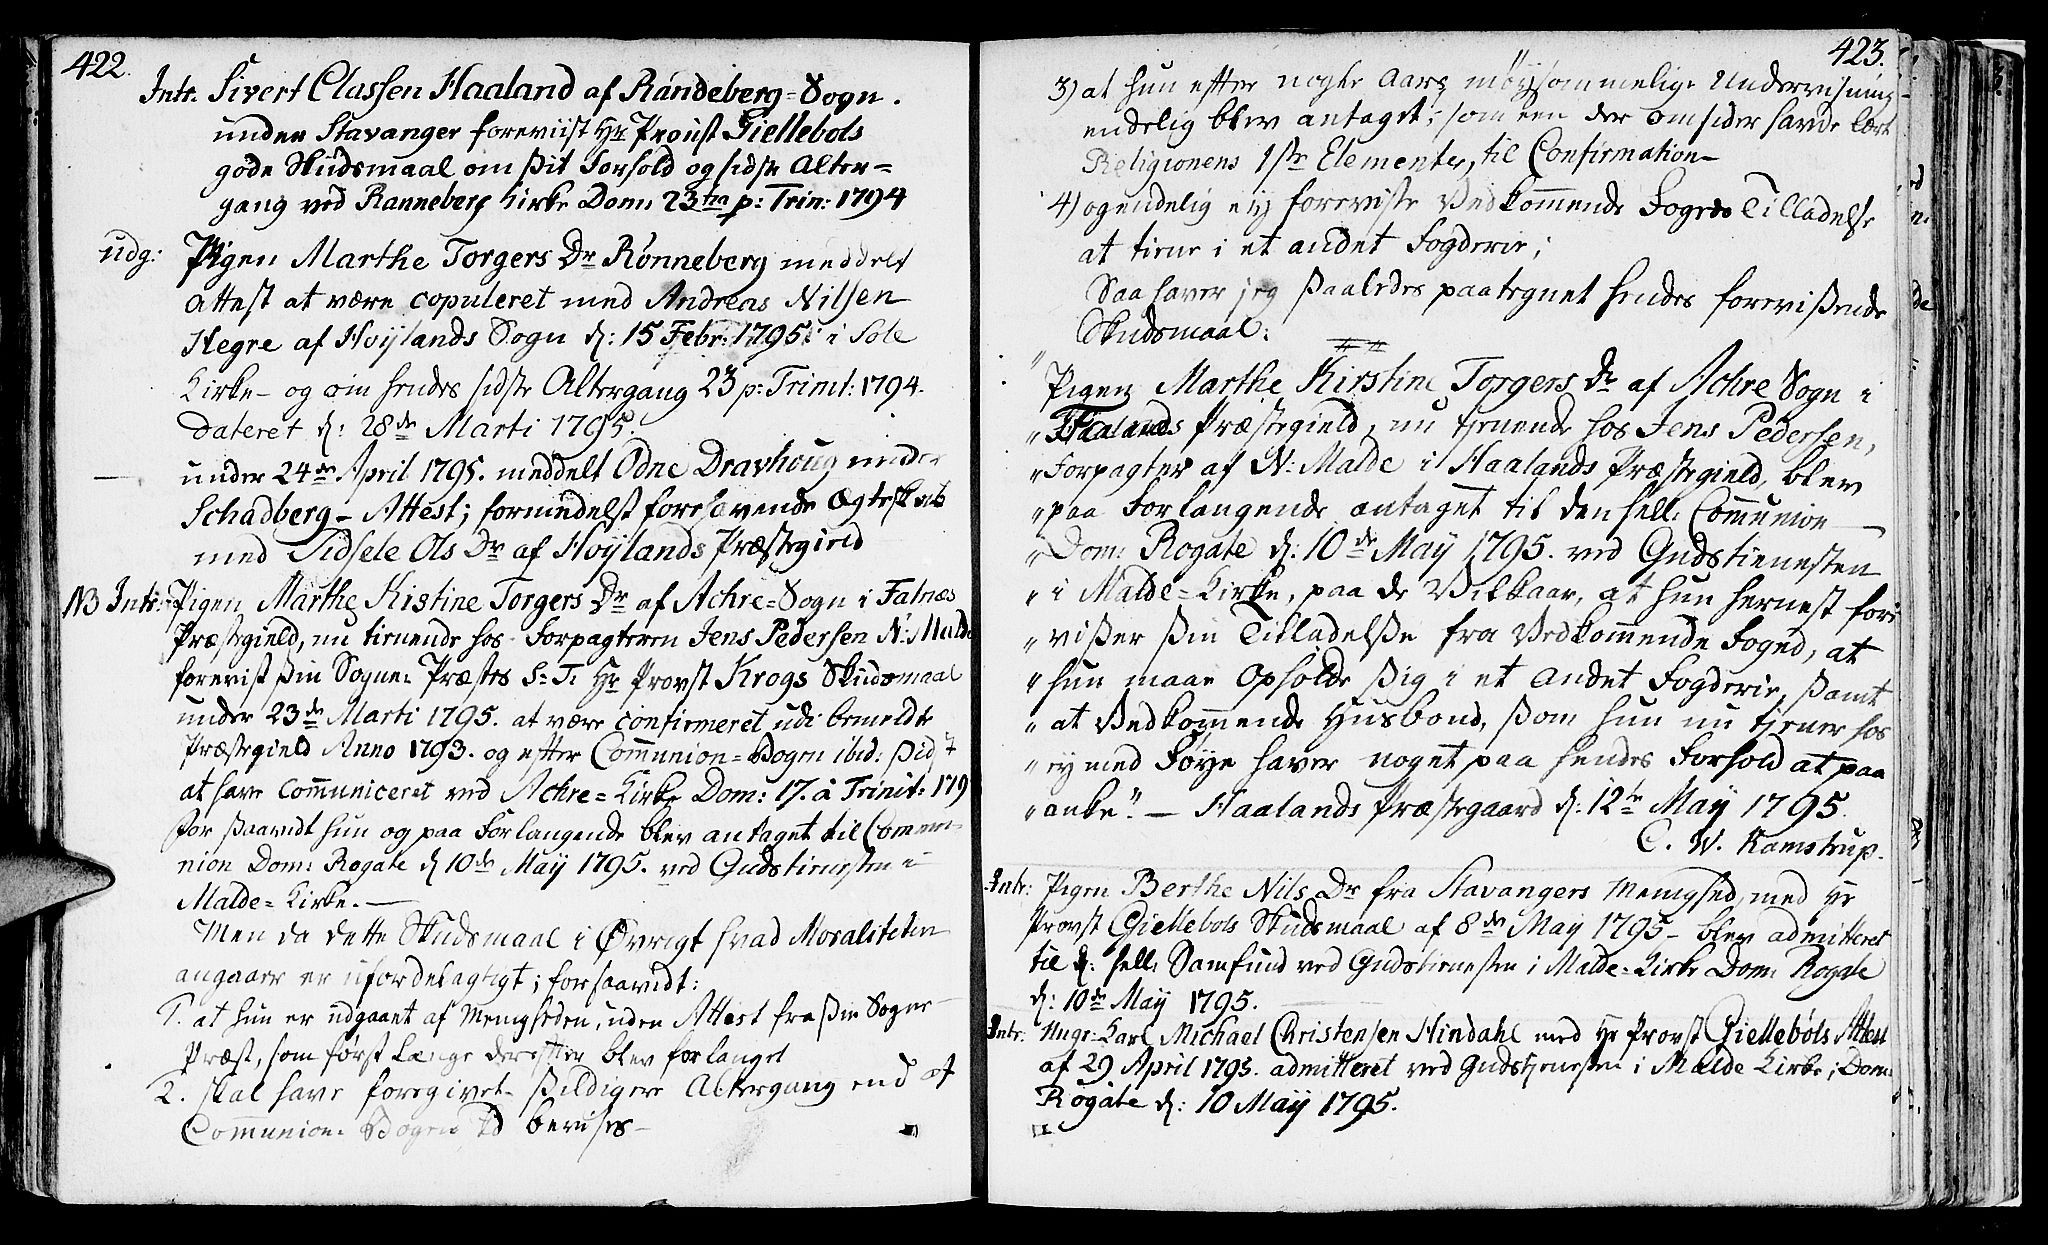 422.
Intr. Sivert Classen Haaland af Randeberg=Sogn.
under Stavanger foreviist Hr Proust Giellebols
gode Skudsmaal om sit Forhold og sidste Alter=
gang ved Ranneberg Kirke Dom: 23tia p: Trin: 1794
udg: Pigen Marthe Torgers Dr Rønneberg meddelt
Attest at være copuleret med Andreas Nilsen
Hegre af Hoÿlands Sogn d: 15 Febr: 1795 i Sole
Kirke – og om hendes sidste Altergang 23 p: Trinit: 1794.
Dateret d: 28de Marti 1795.
— under 24de April 1795. meddelt Odne Dravhoug
Schadberg – Attest; formedelst forehavende Ægteskab
med Sidsele Ols Dr af Hoÿlands Præstegield
NB Intr: Pigen Marthe Kistine Torgers Dr af Achre=Sogn i Falnæs
Præstegield, nu tienende hos Forpagteren Jens Pedersen N: Malde
forevist sin Sogne-Præstes S: T: Hr Provst Krogs Skudsmaal
under 23de Marti 1795. at være confirmeret udi bemeldte
Præstegield Anno 1793. og efter Communion=Bogen ibid: Pid 7
at have Communiceret ved Achre=Kirke Dom: 17. à Trinit: 179
for saavidt hun og paa Forlangende blev antaget til Commu-
nion Dom: Rogate d 10de May 1795. ved Gudstienesten i
Malde=Kirke. —
Men da dette Skudsmaal i Øvrigt hvad Moraliteten
angaaer er ufordelagtigt; forsaavidt:
1. at hun er udgaaet af Menigheden, uden Attest fra sin Sogne
Præst, som først længe derefter blev forlanget
2. skal have foregivet sildigere Altergang end af
Communion Bogen beviises –
423.
3) at hun efter nogle Aars møÿsommelige Underviisning
endelig blev antaget, som een der omsider havde lært
Religionens 1ste Elementer, til Confirmation –
4) og endelig eÿ foreviste Vedkommende Fogeds Tilladelse
at tiene i et andet Fogderie;
Saa haver jeg saaledes paategnet hendes forevisende
Skudsmaal:
" Pigen Marthe Kirstine Torgers Dr af Achre Sogn i
" Haalands Præstegield, nu tjenende hos Jens Pedersen,
" Forpagter af N: Malde i Haalands Præstegield, blev
" paa Forlangende antaget til den hell: Communion —
" Dom: Rogate d: 10de Maÿ 1795. ved Gudstienesten
" i Malde=Kirke, paa de Vilkaar, at hun hernest fore
" viser sin Tilladelse fra Vedkommende Foged, at
" hun maae Opholde sig i et andet Fogderie, samt
" at Vedkommende Husbond, som hun nu tjener hos
" eÿ med Føÿe haver noget paa hendes Forhold at paa
" anke." — Haalands Præstegaard d: 12te Maÿ 1795.
C. W. Ramstrup.
Intr: Pigen Berthe Nils Dr fra Stavangers Menighed, med Hr
Provst Giellebols Skudsmaal af 8de May 1795 – blev admitteret
til d: hell: Samfund ved Gudstienesten i Malde=Kirke Dom: Rogate
d: 10de Maÿ 1795.
Intr: Ungr: Karl Michael Christensen Hindahl med Hr Provst Giellebøls Attest
af 29 April 1795. admitteret ved Gudstjenesten i Malde Kirke; Dom:
Rogate d: 10 Maÿ 1795.